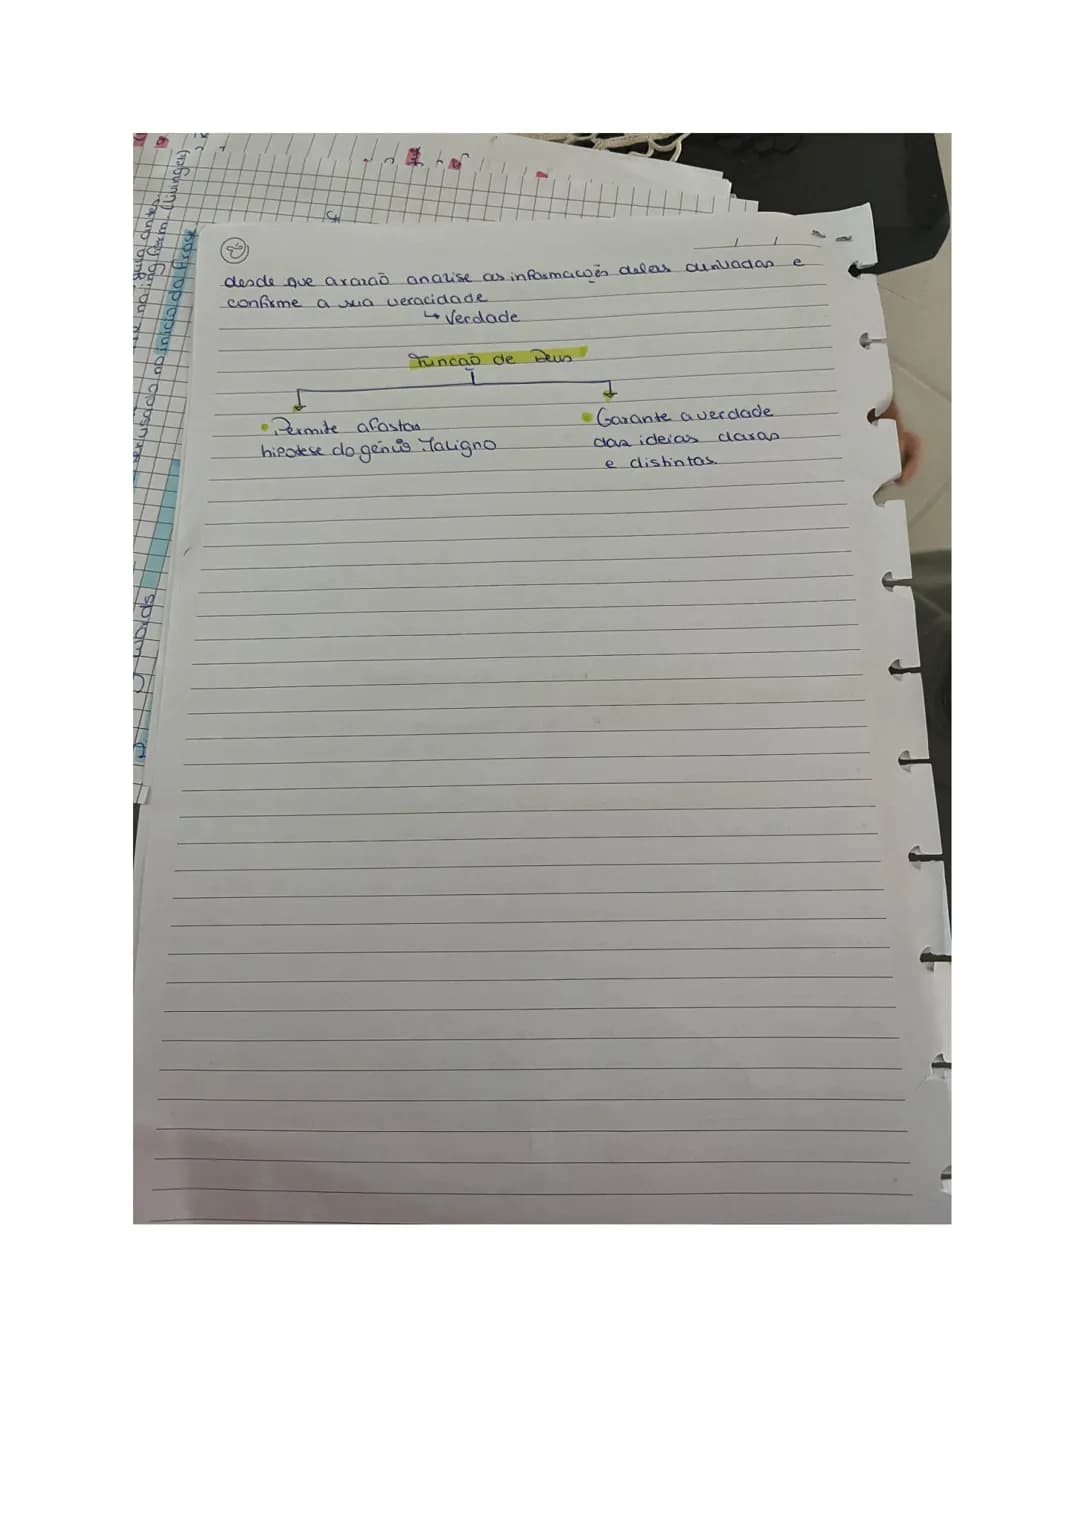 2
desde que a razão analise as informações delas derivadas e
confirme a sua veracidade
↳ Verdade
Função de Deus
• Permite afastar
hipotese do génio Maligno
• Garante a verdade
das ideias claras
e distintas.
no inicio da frase
words